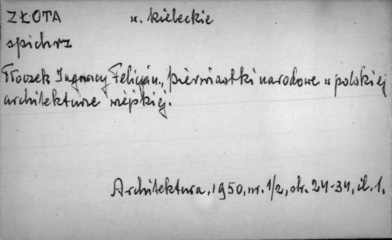 ZŁOTA w. kieleckie
spichrz
Tłoczek Ignacy Felicjan., pierwiastki narodowe w polskiej
architekturze wiejskiej.
Architektura, 1950, nr. 1/2, str. 24-34, il. 1.